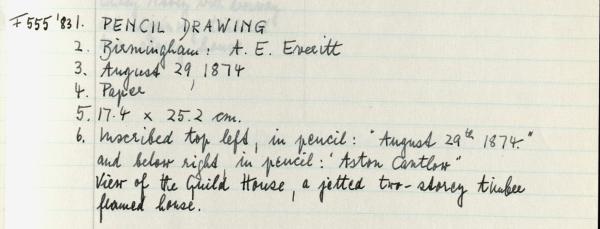 F555 '83 1. PENCIL DRAWING
2. Birmingham: A. E. Everitt
3. August 29, 1874
4. Paper
5. 17.4 x 25.2 cm.
6. Inscribed top left, in pencil: "August 29th 1874."
and below right, in pencil: 'Aston Cantlow"
View of the Guild House, a jetted two-storey timber
framed house.